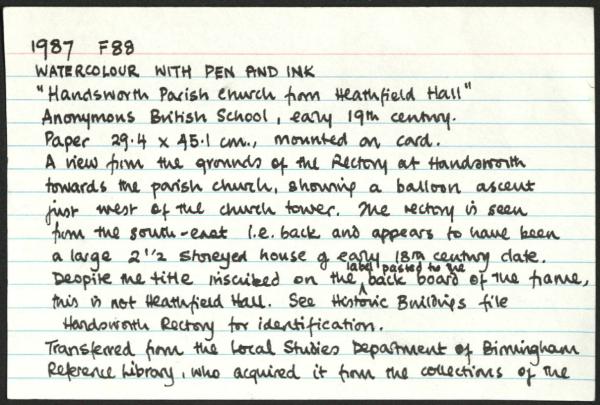 1987 F88
WATERCOLOUR WITH PEN AND INK
"Handsworth Parish Church from Heathfield Hall"
Anonymous British School, early 19th century.
Paper 29.4 x 45.1 cm., mounted on card.
A view from the grounds of the Rectory at Handsworth
towards the parish church, showing a balloon ascent
just west of the church tower. The rectory is seen
from the south-east i.e. back and appears to have been
a large 2 1/2 storeyed house of early 18th century date.
Despite the title inscribed on the label pasted to the back board of the frame,
this is not Heathfield Hall. See Historic Buildings file
Handsworth Rectory for identification.
Transferred from the Local Studies Department of Birmingham
Reference Library, who acquired it from the collections of the